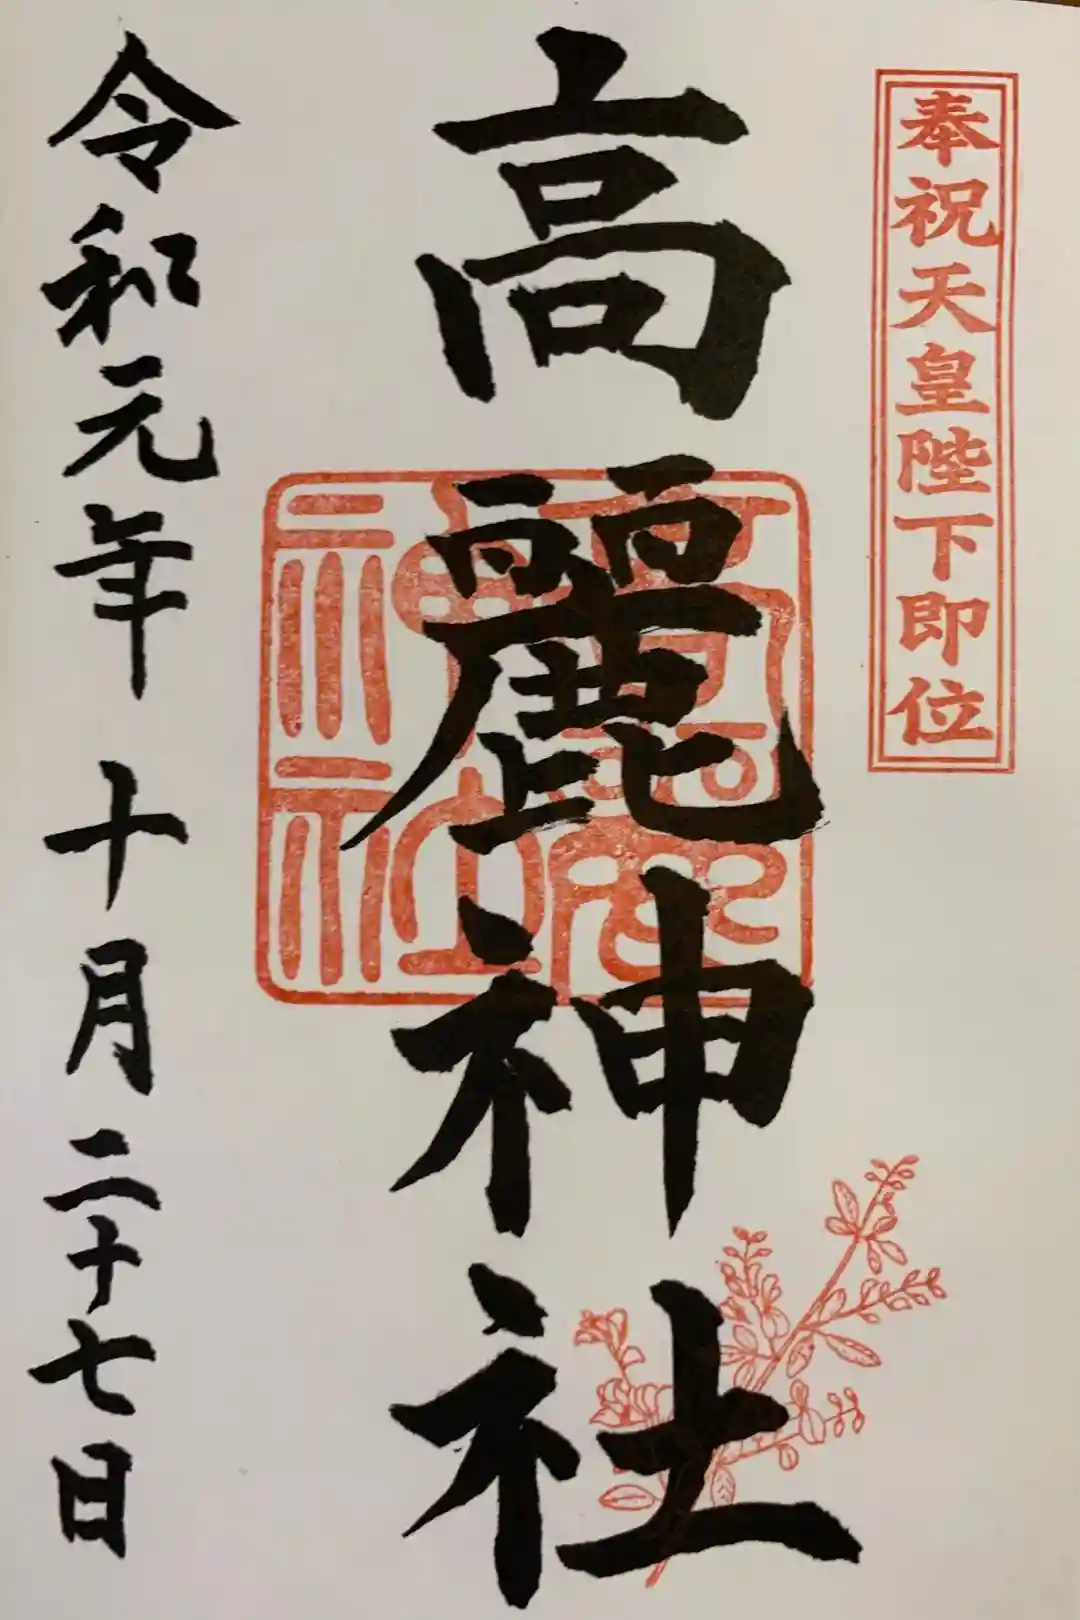 奉祝天皇陛下即位
高麗神社
高麗神社
令和元年十月二十七日